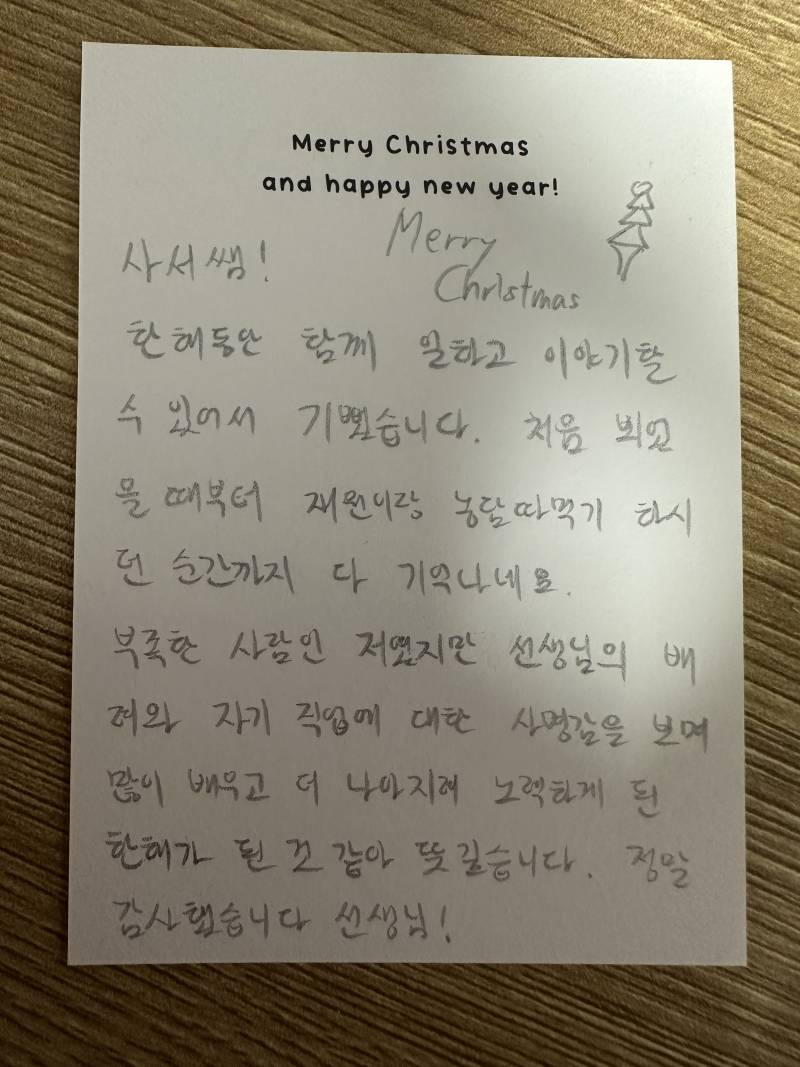 Merry Christmas
and happy new year!
사서쌤! Merry
Christmas
한해동안 함께 일하고 이야기할
수 있어서 기뻤습니다. 처음 뵈었
을 때부터 재원이랑 농담따먹기 하시
던 순간까지 다 기억나네요.
부족한 사람인 저였지만 선생님의 배
려와 자기 직업에 대한 사명감을 보며
많이 배우고 더 나아지려 노력하게 된
한해가 된 것 같아 뜻깊습니다. 정말
감사했습니다 선생님!